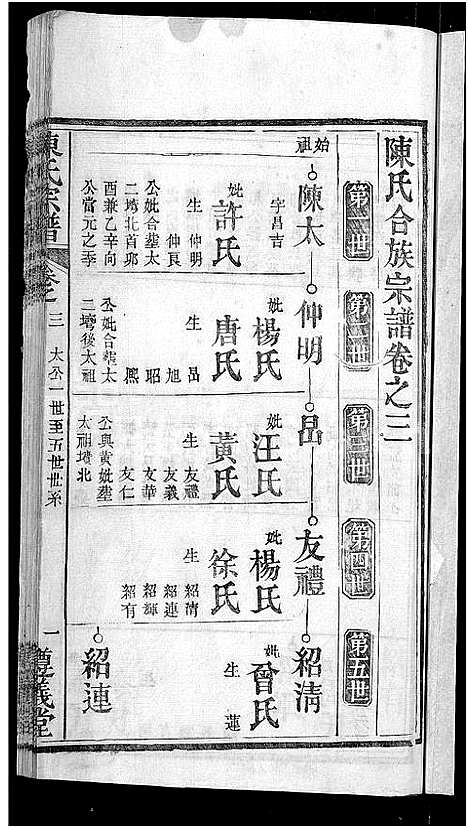 陳氏合族宗譜卷之三
第一世
第二世
第三世
第四世
第五世
始祖
陳太
字昌吉
妣許氏
生
仲明
仲良
公妣合塟太
二塆北首卯
酉兼乙辛向
公當元之季
仲明
妣楊氏
唐氏
生
昌
旭
昭
熙
公妣合塟太
二塆後太祖
妣汪氏
黃氏
生
友禮
友義
友華
友仁
公與黃妣塟
太祖墳北
友禮
妣楊氏
徐氏
生
紹清
紹連
紹輝
紹有
紹清
妣曾氏
生
蓮
紹連
陳氏宗譜
卷之三
太公一世至五世世系
一